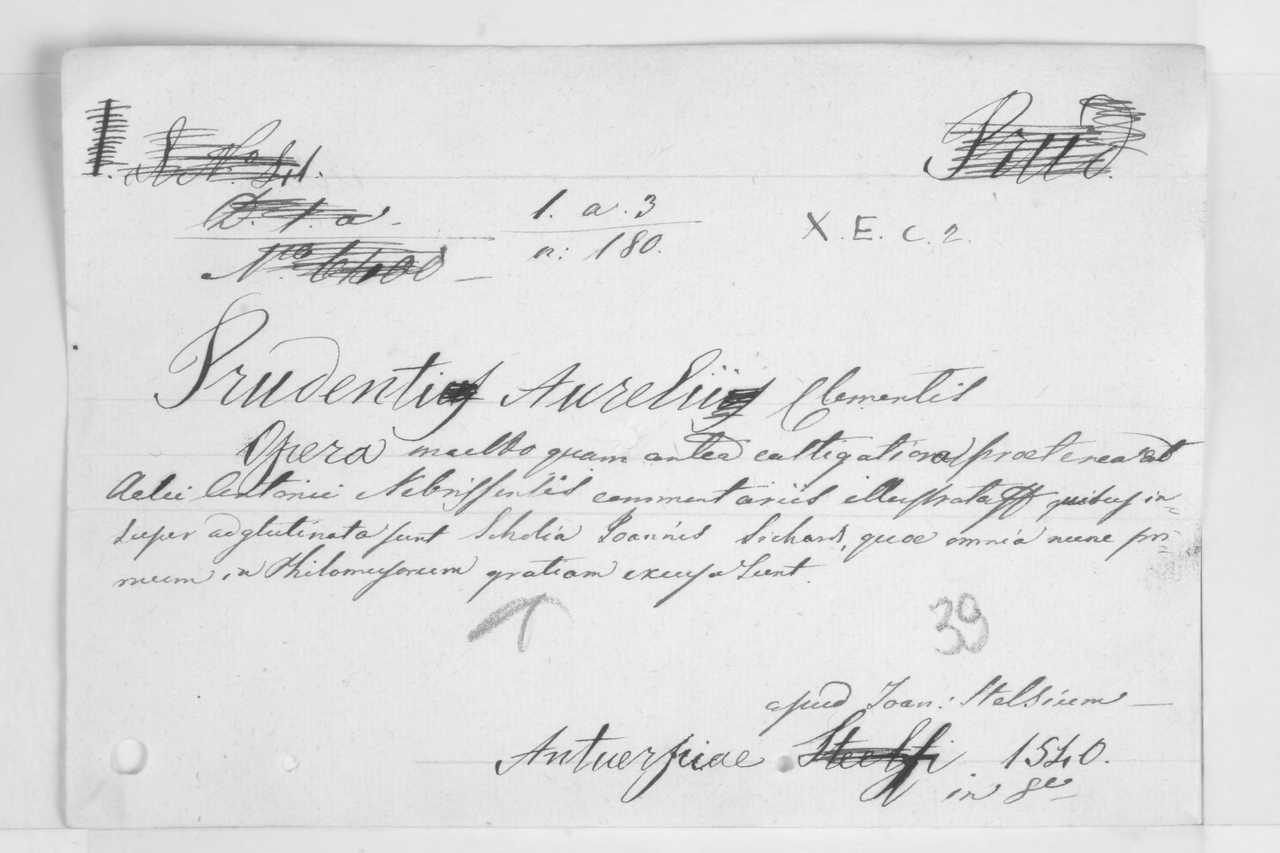 Prud
I N.º 54.
D. 1. a. 1. a. 3
N.ro 6400 n: 180. X. E. c. 2.
Prudentii Aurelii Clementis
Opera multo quam antea castigatiora, praeterea et
Aelii Antonii Nebrissensis commentariis illustrata quibus in
super adglutinata sunt Scholia Joannis Sichard, quae omnia nunc pri
mum in Philomusorum gratiam excusa sunt.
39
apud Joan: Stelsium
Antuerpiae Steelsi 1540.
in 8º